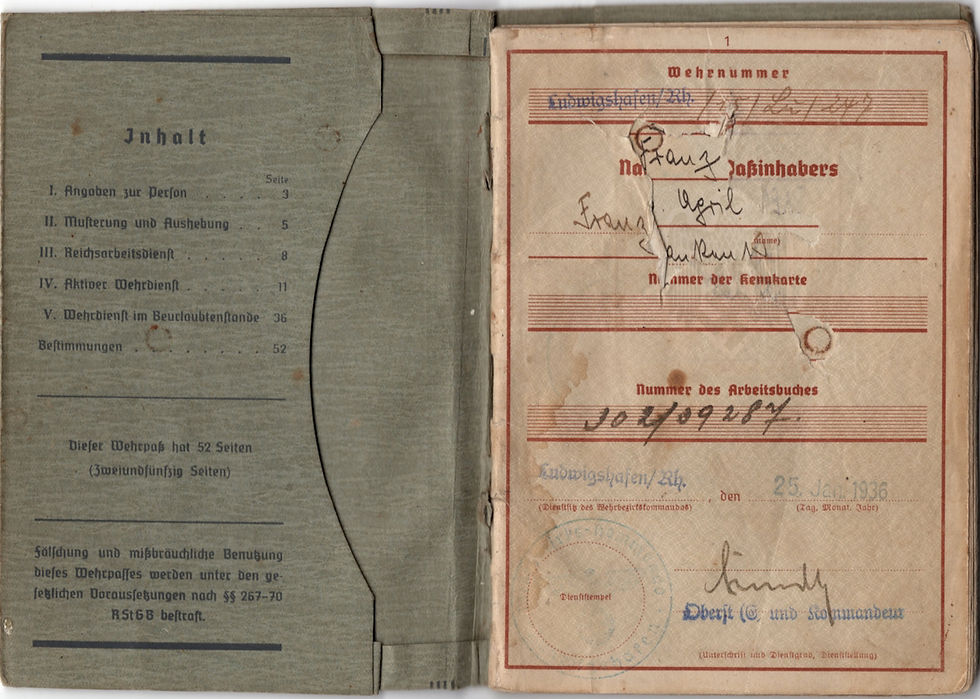 Inhalt
Seite
I. Angaben zur Person . . . . . 3
II. Musterung und Aushebung . . . 5
III. Reichsarbeitsdienst . . . . . . 8
IV. Aktiver Wehrdienst . . . . . . 11
V. Wehrdienst im Beurlaubtenstande 36
Bestimmungen . . . . . . . . 52
Dieser Wehrpaß hat 52 Seiten
(Zweiundfünfzig Seiten)
Fälschung und mißbräuchliche Benutzung
dieses Wehrpasses werden unter den ge-
setzlichen Voraussetzungen nach §§ 267-70
RStGB bestraft.
1
Wehrnummer
Ludwigshafen/Rh.
Franz
Na Paßinhabers
April
Franz
name)
Nummer der Kennkarte
Nummer des Arbeitsbuches
302/09287.
Ludwigshafen/Rh. den 25. Jan. 1936
(Dienstsitz des Wehrbezirkskommandos) (Tag, Monat, Jahr)
Dienststempel
Oberst (E) und Kommandeur
(Unterschrift und Dienstgrad, Dienststellung)